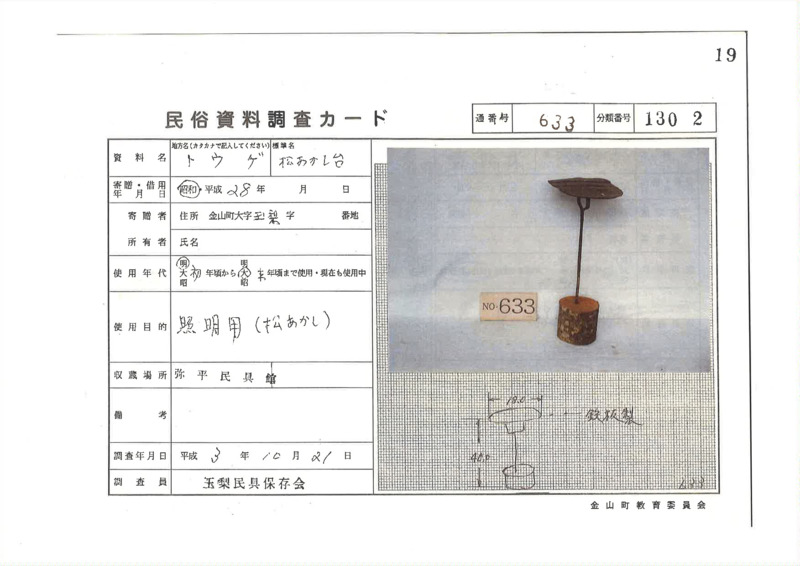 19
民俗資料調査カード
通番号 633 分類番号 130 2
資料名 地方名(カタカナで記入してください) トウゲ 標準名 松あかし台
寄贈・借用年月日 昭和・平成 28 年 月 日
寄贈者 住所 金山町大字玉梨字 番地
所有者 氏名
使用年代 明大昭 初年頃から 明大昭 末年頃まで使用・現在も使用中
使用目的 照明用(松あかし)
収蔵場所 弥平民具館
備考
調査年月日 平成 3 年 10 月 21 日
調査員 玉梨民具保存会
NO. 633
18.0
鉄板製
40.0
633
金山町教育委員会